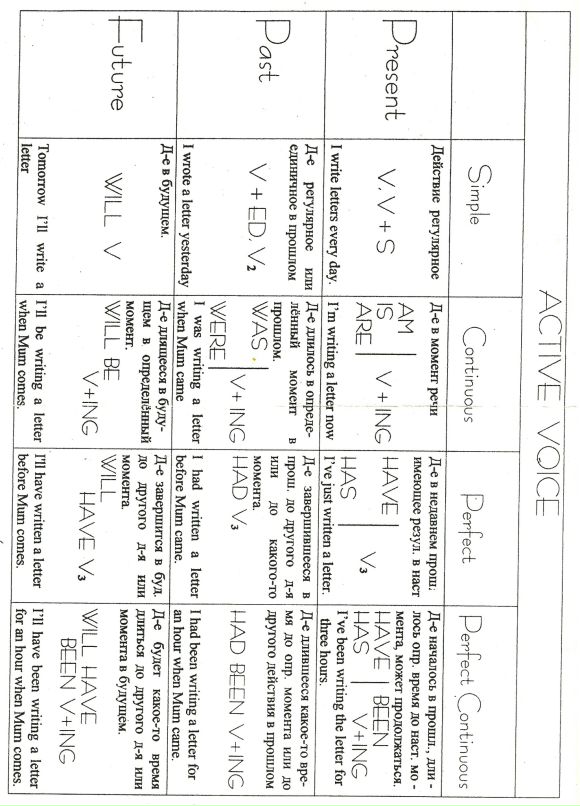 ACTIVE VOICE
Simple
Continuous
Perfect
Perfect Continuous
Present
Действие регулярное
V. V + S
I write letters every day.
Д-е в момент речи
AM
IS
ARE
V + ING
I'm writing a letter now
Д-е в недавнем прош.
имеющее резул. в наст
HAVE
HAS
V₃
I've just written a letter.
Д-е началось в прошл., дли -
лось опр. время до наст. мо -
мента, может продолжаться.
HAVE
HAS
BEEN
V+ING
I've been writing the letter for
three hours.
Past
Д-е регулярное или
единичное в прошлом
V + ED. V₂
I wrote a letter yesterday
Д-е длилось в опреде-
лённый момент в
прошлом.
WAS
WERE
V + ING
I was writing a letter
when Mum came
Д-е завершившееся в
прош. до другого д-я
или до какого-то
момента.
HAD V₃
I had written a letter
before Mum came.
Д-е длившееся какое-то вре-
мя до опр. момента или до
другого действия в прошлом
HAD BEEN V+ING
I had been writing a letter for
an hour when Mum came.
Future
Д-е в будущем.
WILL V
Tomorrow I'll write a
letter
Д-е длящееся в буду-
щем в определённый
момент.
WILL BE
V+ING
I'll be writing a letter
when Mum comes.
Д-е завершится в буд.
до другого д-я или
момента.
WILL
HAVE V₃
I'll have written a letter
before Mum comes.
Д-е будет какое-то время
длиться до другого д-я или
момента в будущем.
WILL HAVE
BEEN V+ING
I'll have been writing a letter
for an hour when Mum comes.